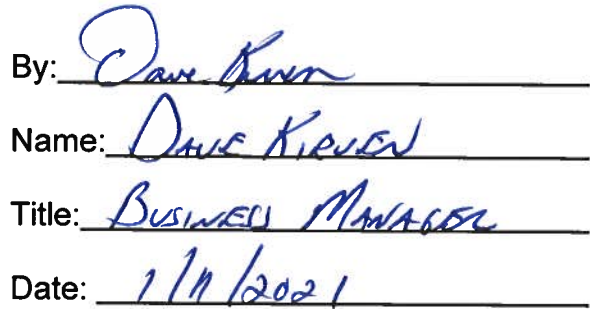 By: Dave Kirven
Name: DAVE KIRVEN
Title: BUSINESS MANAGER
Date: 1/11/2021